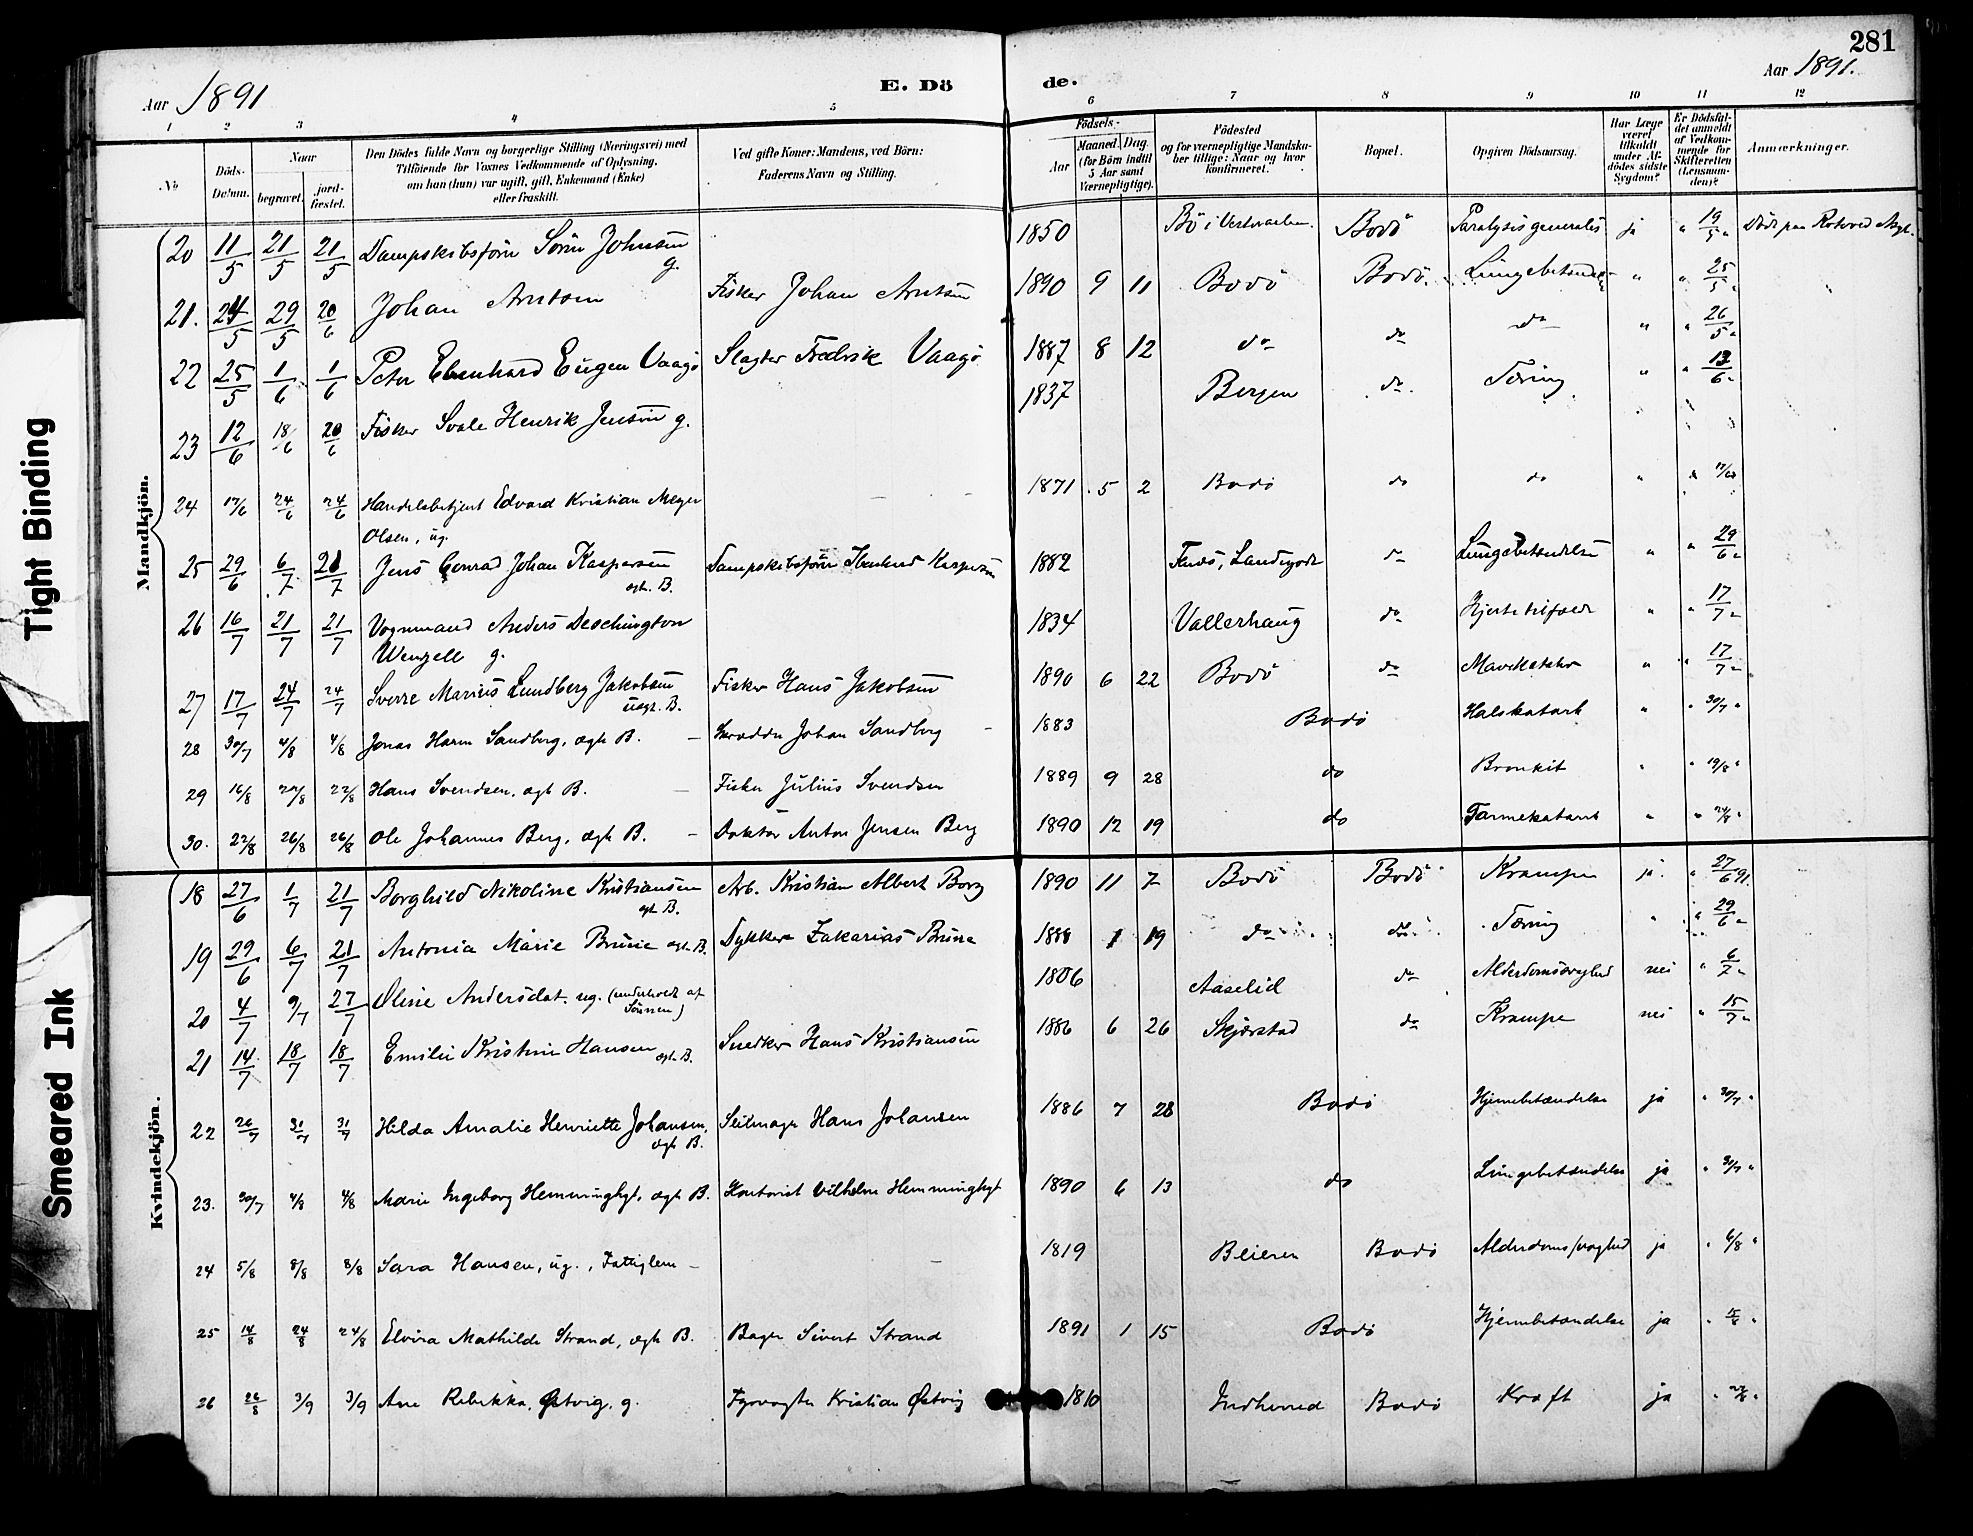 281
Aar 1891
E. Döde.
Aar 1891.
1 2 3 4 5 6 7 8 9 10 11 12
No
Döds-Datum.
Naar
begravet.
jordfæstet.
Den Dödes fulde Navn og borgerlige Stilling (Næringsvei) med
Tilföiende for Voxnes Vedkommende af Oplysning,
om han (hun) var ugift, gift, Enkemand (Enke)
eller fraskilt.
Ved gifte Koner: Mandens, ved Börn:
Faderens Navn og Stilling.
Födsels-
Aar
Maaned. Dag.
(for Börn indtil
5 Aar samt
Værnepligtige).
Födested
og for værnepligtige Mandskaber tillige: Naar og hvor
konfirmeret.
Bopæl.
Opgiven Dödsaarsag.
Har Læge
været
tilkaldt
under Afdödes sidste
Sygdom?
Er Dödsfaldet anmeldt
af Vedkommende for
Skifteretten
(Lensmanden)?
Anmærkninger.
Mandkjön.
20 11/5 21/5 21/5 Dampskibsförer Sören Johnsen g. 1850 Bö i Vesteraalen Bodö Paralysis generalis ja " 19/5 " Död paa Rotvold Asyl.
21. 24/5 29/5 20/6 Johan Arntsen Fisker Johan Arntsen 1890 9 11 Bodö Bodö Lungebetændelse " " 25/5 "
22 25/5 1/6 1/6 Peter Edvard Eugen Vaagö Slagter Fredrik Vaagö 1887 8 12 do do do " " 26/5 "
23 12/6 18/6 20/6 Fisker Svale Henrik Jensen g. 1837 Bergen do Tæring " " 13/6 "
24 17/6 24/6 24/6 Handelsbetjent Edvard Kristian Meyer
Olsen, ug. 1871 5 2 Bodö do do "
25 29/6 6/7 21/7 Jens Conrad Johan Kaspersen
egt. B. Dampskibsförer Kaspersen 1882 Landegode do Lungebetændelse " " 29/6 "
26 16/7 21/7 21/7 Vognmand Anders Deschington
Wenzell g. 1834 Vallerhaug do Hjertetilfælde " " 17/7 "
27 17/7 24/7 24/7 Sverre Marius Lundberg Jakobsen
uegt. B. Fisker Hans Jakobsen 1890 6 22 Bodö do Mavekatarh " " 17/7 "
28 30/7 4/8 4/8 Jonas Harm Sandberg, ægte B. – Skrædder Johan Sandberg – 1883 Bodö Halskatarh " " 30/7 "
29 16/8 22/8 22/8 Hans Svendsen, ægt B. – Fisker Julius Svendsen 1889 9 28 do Bronkit " " 19/8 "
30. 22/8 26/8 26/8 Ole Johannes Berg, ægte B. – Doktor Anton Jensen Berg 1890 12 19 do Tarmekatarh " " 24/8 "
Kvindekjön.
18 27/6 1/7 21/7 Borghild Nikoline Kristiansen
egt. B. Arb. Kristian Albert Borg 1890 11 7 Bodö Bodö Krampe ja " 27/6 91.
19 29/6 6/7 21/7 Antonia Marie Bruse egt. B. Dykker Zakarias Bruse 1888 1 19 do do Tæring " " 29/6 "
20 4/7 9/7 27/7 Oline Andersdat. ug. (underholdt af
Sönnen) 1806 Aaselid do Alderdomssvaghed nei " 6/7 "
21 14/7 18/7 18/7 Emilie Kristine Hansen egt. B. Snedker Hans Kristiansen 1886 6 26 Skjerstad do Krampe nei " 15/7 "
22 26/7 31/7 31/7 Hilda Amalie Henriette Johansen,
ægte B. Seilmager Hans Johansen 1886 7 28 Bodö Hjernebetændelse ja " 30/7 "
23. 30/7 4/8 4/8 Marie Ingeborg Hemminghyt, ægte B. Kontorist Vilhelm Hemminghyt 1890 6 13 do Lungebetændelse ja " 31/7 "
24 5/8 8/8 8/8 Sara Hansen, ug., Fattiglem – – 1819 Beieren Bodö Alderdomssvaghed ja " 6/8 "
25 14/8 24/8 24/8 Elvira Mathilde Strand, ægte B. Bager Sivert Strand 1891 1 15 Bodö Hjernebetændelse ja " "
26 26/8 3/9 3/9 Ane Rebekka Østvig, g. Fyrvogter Kristian Østvig 1810 Indherred Bodö Kræft ja " "
Tight Binding
Smeared Ink